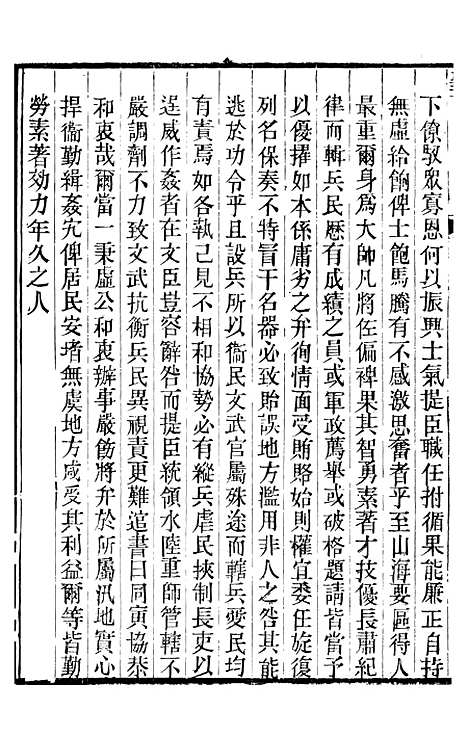 下僚馭眾寡恩何以振興士氣提臣職任拊循果能廉正自持
無虛給餉俾士飽馬騰有不感激思奮者乎至山海要區得人
最重爾身為大帥凡將佐偏裨果其智勇素著才技優長肅紀
律而輯兵民歷有成績之員或軍政薦舉或破格題請皆當予
以優擢如本係庸劣之弁徇情面受賄賂始則權宜委任旋復
列名保奏不特冒干名器必致貽誤地方濫用非人之咎其能
逃於功令乎且設兵所以衞民文武官屬殊途而轄兵愛民均
有責焉如各執己見罔有和協勢必有縱兵虐民挾制長吏以
逞威作姦者在文臣豈容辭咎而提臣統領水陸重師管轄不
嚴調劑不力致文武抗衡兵民異視責更難逭書曰同寅協恭
和衷哉爾當一秉虛公和衷辦事嚴飭將弁於所屬汛地實心
捍衞勤緝姦宄俾居民安堵無虞地方咸受其利益爾等皆勤
勞素著効力年久之人